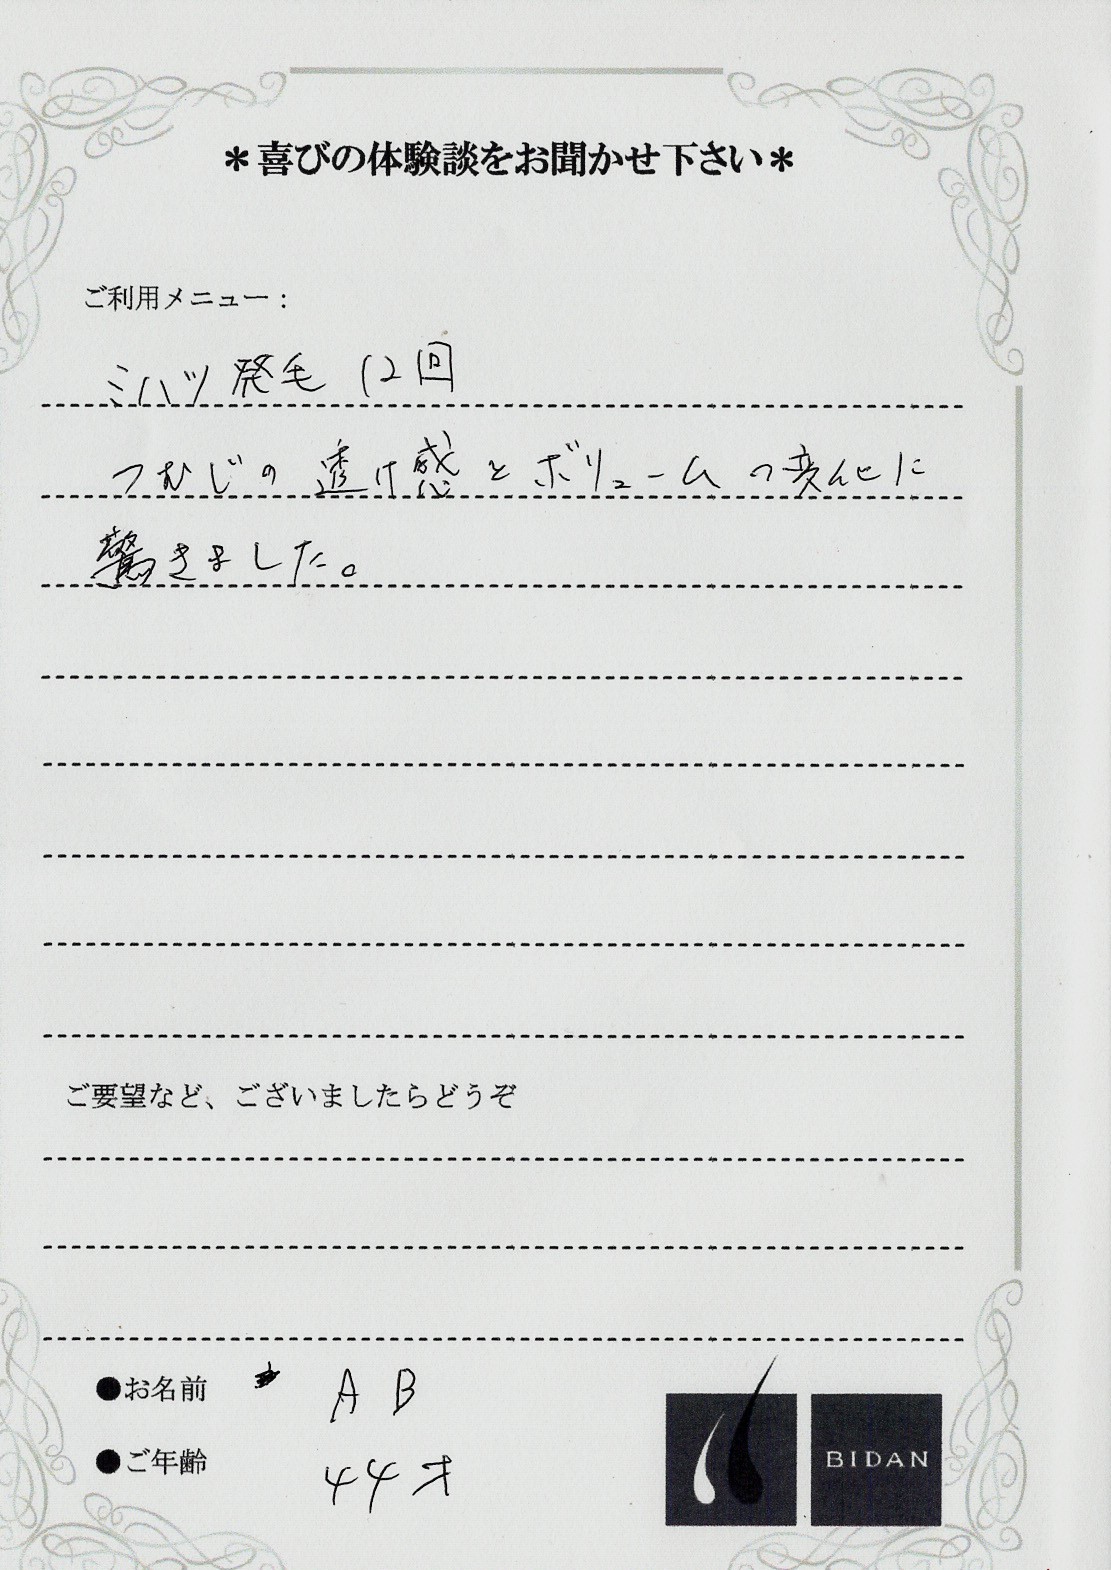 ＊喜びの体験談をお聞かせ下さい＊
ご利用メニュー：
ミハツ発毛 12回
つむじの透け感とボリュームの変化に
驚きました。
ご要望など、ございましたらどうぞ
●お名前 AB
●ご年齢 44才
BIDAN